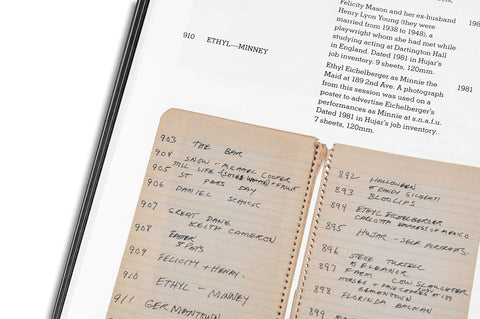 Felicity Mason and her ex-husband
Henry Lyon Young (they were
married from 1938 to 1948), a
playwright whom she had met while
studying acting at Dartington Hall
in England. Dated 1981 in Hujar's
job inventory. 9 sheets, 120mm.
198
910 ETHYL—MINNEY
Ethyl Eichelberger as Minnie the
Maid at 189 2nd Ave. A photograph
from this session was used on a
poster to advertise Eichelberger's
performances as Minnie at s.n.a.f.u.
Dated 1981 in Hujar's job inventory.
7 sheets, 120mm.
1981
903 THE BAR
904 SNOW - MICHAEL COOPER
905 STILL LIFE FRUIT
ST PATS DAY
906 DANIEL SCHOOK
907 GREAT DANE
KEITH CAMERON
908 EASTER
ST PATS
909 FELICITY + HENRY.
910 ETHYL - MINNEY
911 GERMANTOWN
892 HALLOWEEN
RANDY GILBERTI
893 BLOOLIPS
894 ETHYL EICHELBERGER
CARLOTTA EMPRESS OF MEXICO
895 HUJAR - SELF PORTRAITS.
896 STEVE TURTELL
ELEANOR
897 FARM COW SLAUGHTER
HORSES + DANCERS AT 189
898 GERMANTOWN
FLORINDA BALKAN
899